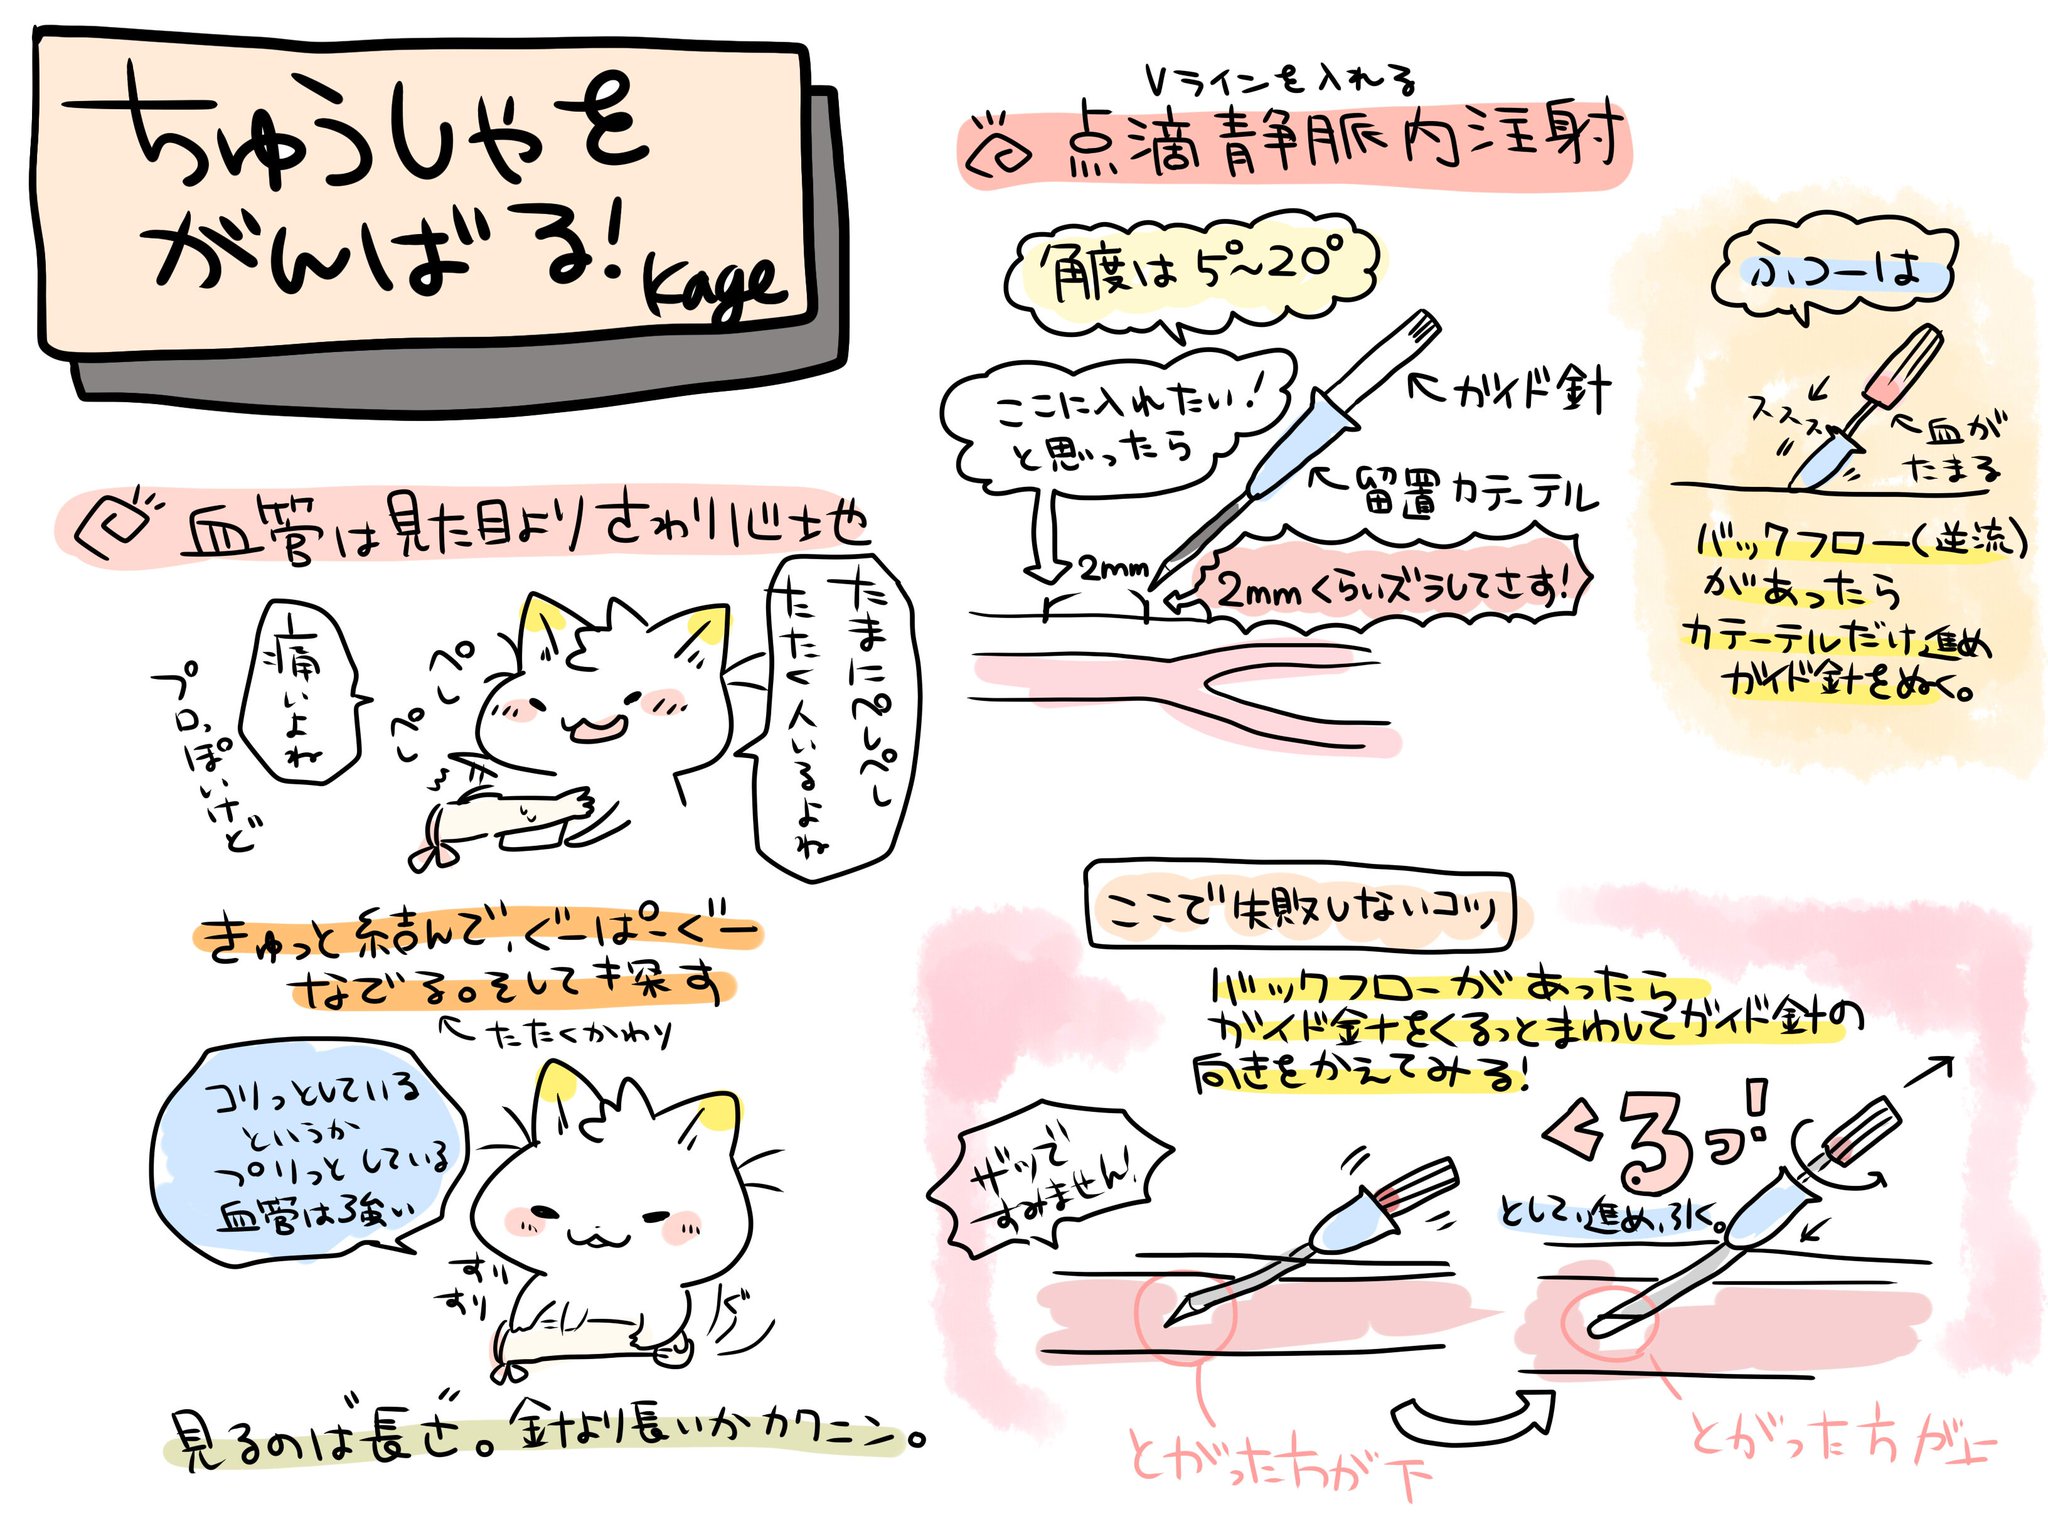 ちゅうしゃを
がんばる!
Kage
血管は見た目よりさわり心地
たまにペしペし
たたく人いるよね
ペし
ペし
痛いよね
プロっぽいけど
きゅっと結んで、ぐーぱーぐー
なでる。そして探す
↖たたくかわり
コリっとしている
というか
プリっとしている
血管は強い
すり
すり
ぐっ
見るのは“長さ”。針より長いかカクニン。
Vラインを入れる
点滴静脈内注射
角度は5°~20°
ここに入れたい!
と思ったら
ガイド針
留置カテーテル
2mm
2mmくらいズラしてさす!
ふつーは
ススス
血が
たまる
バックフロー(逆流)
があったら
カテーテルだけ進め
ガイド針をぬく。
ここで失敗しないコツ
バックフローがあったら
ガイド針をくるっとまわしてガイド針の
向きをかえてみる!
ザツで
すみません!
くるっ!
として、進め、引く。
とがった方が下
とがった方が上